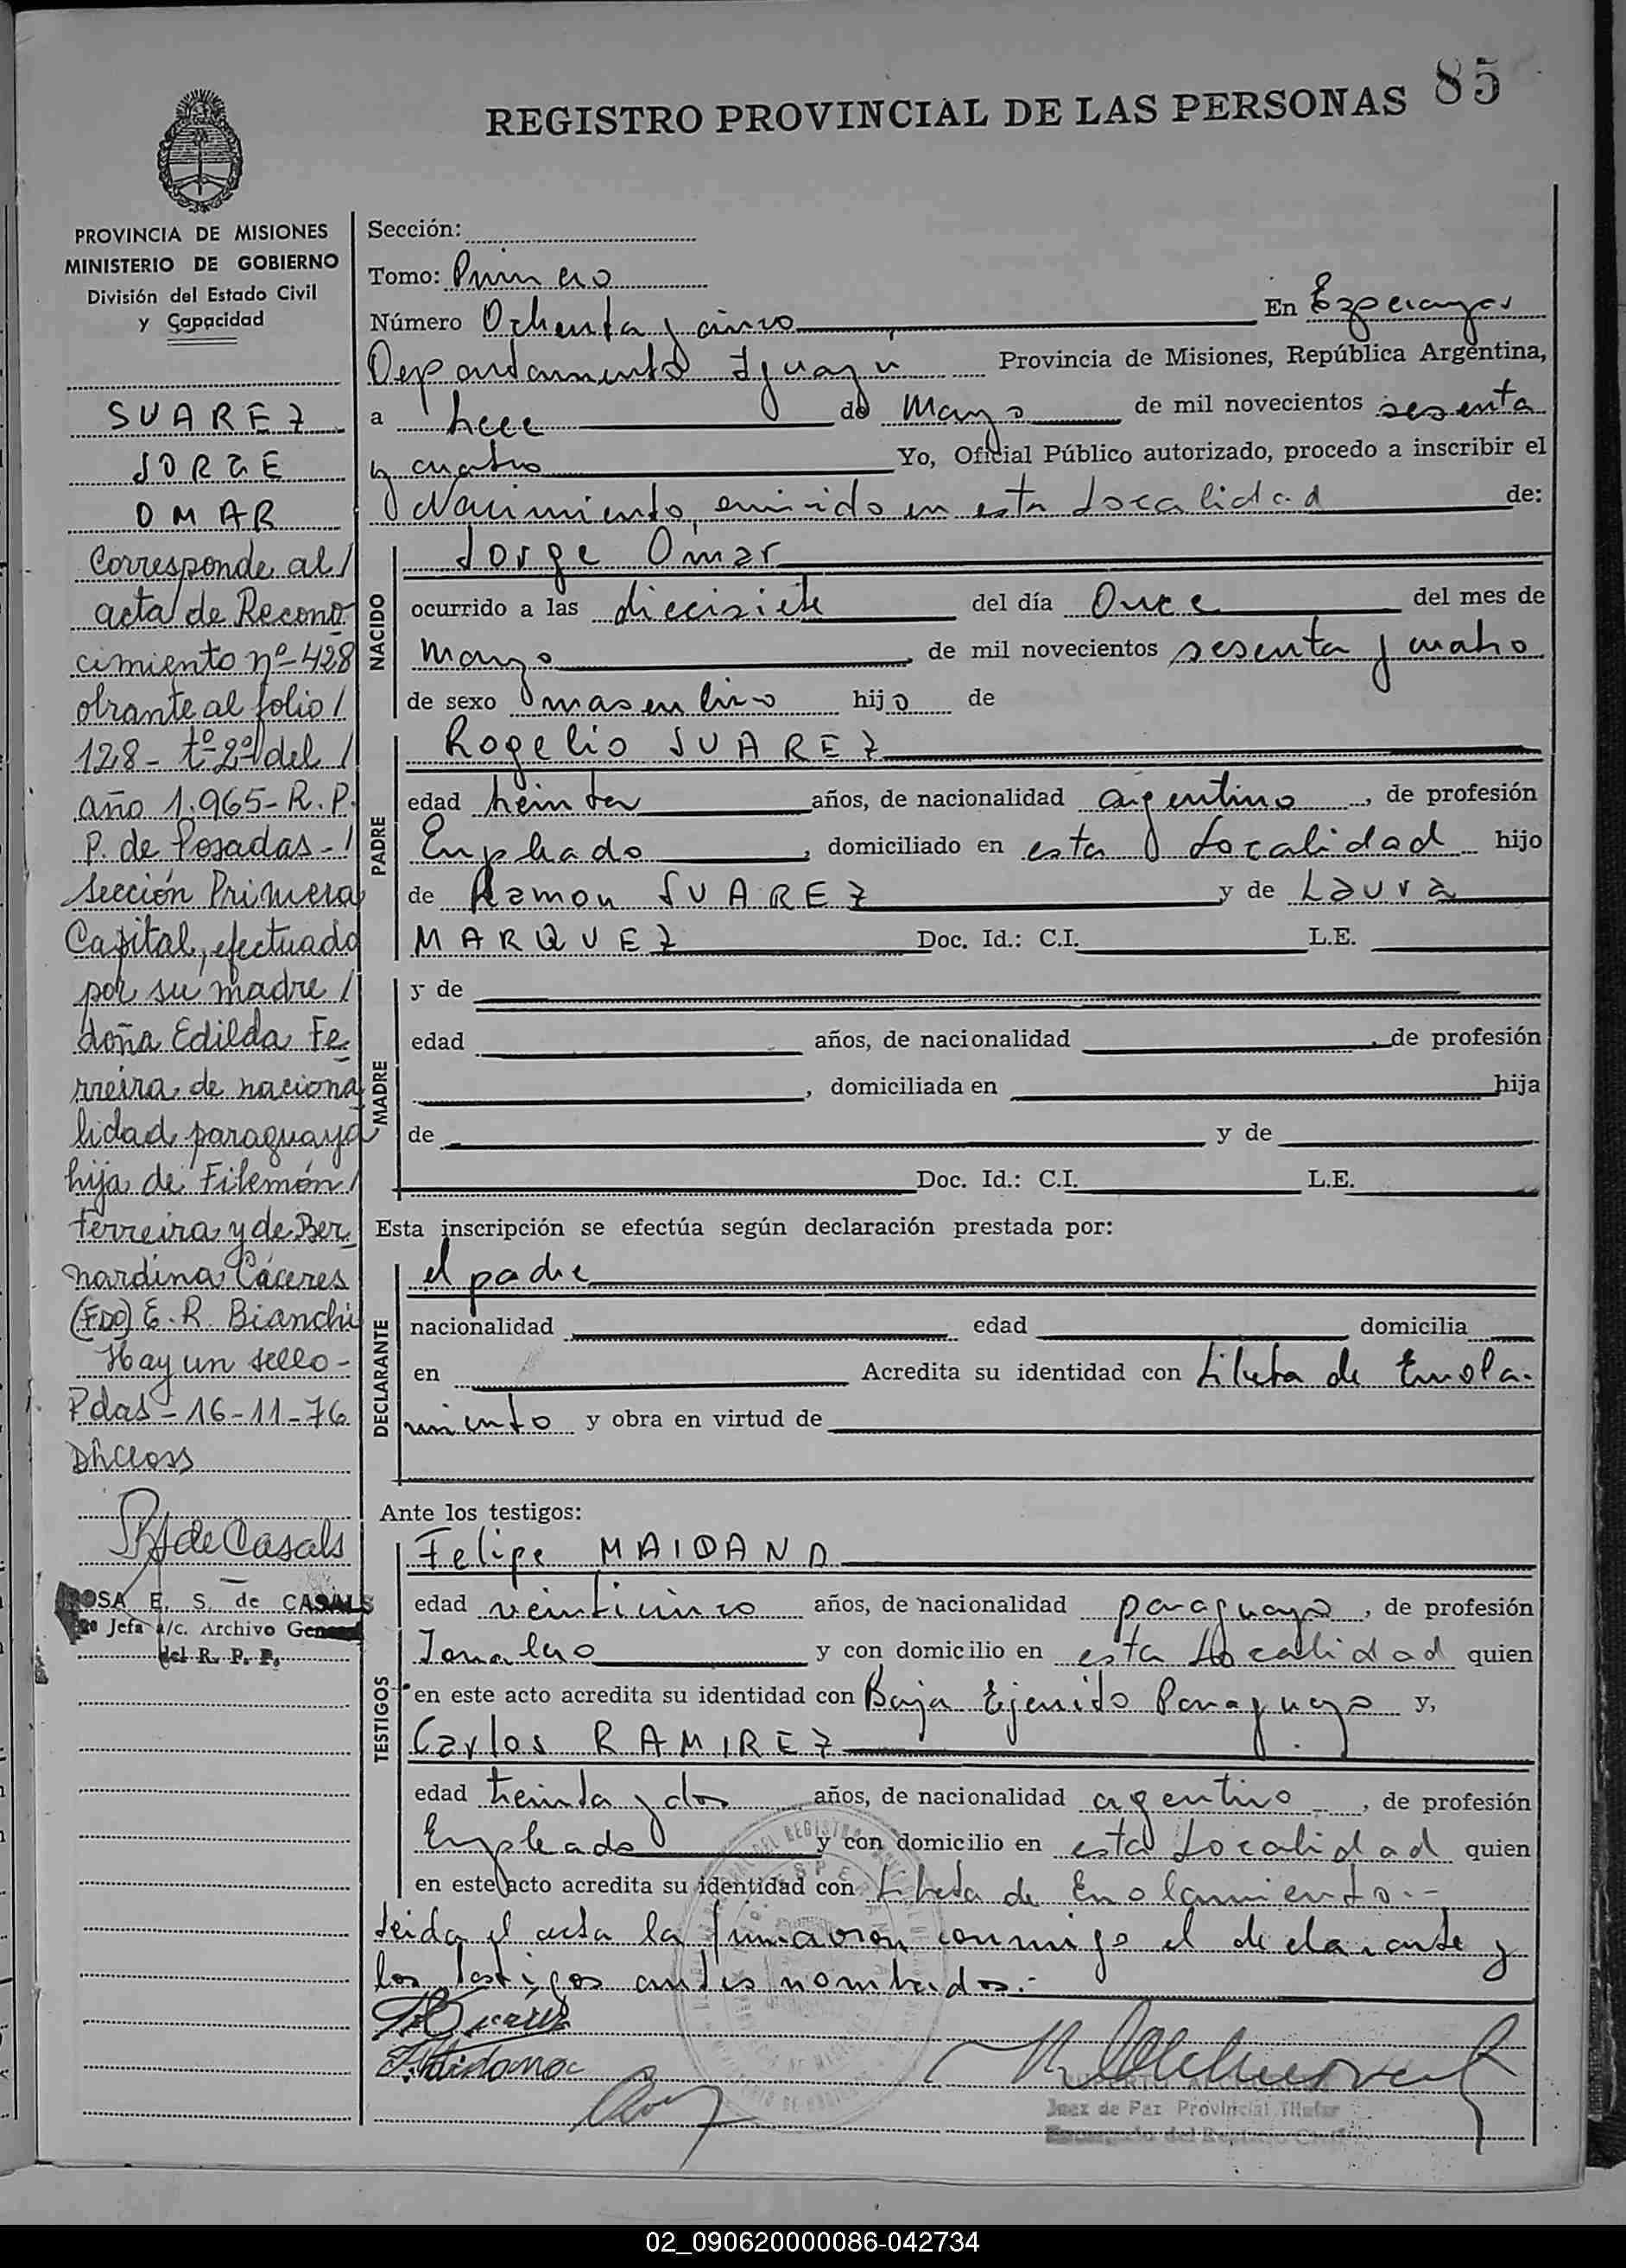 85
REGISTRO PROVINCIAL DE LAS PERSONAS
PROVINCIA DE MISIONES
MINISTERIO DE GOBIERNO
División del Estado Civil
y Capacidad
SUAREZ
JORGE
OMAR
Corresponde al /
acta de Recono
cimiento nº 428
obrante al folio /
128 - tº 2º del /
año 1.965 - R. P.
P. de Posadas - /
Sección Primera
Capital, efectuado
por su madre /
doña Edilda Fe
rreira de naciona
lidad paraguaya
hija de Filemón /
Ferreira y de Ber
nardina Cáceres
(FDO) E. R. Bianchi
Hay un sello -
Pdas - 16 - 11 - 76
de Casals
ROSA E. S. de CASALS
Jefa a/c. Archivo General
del R. P. P.
Sección:
Tomo: Primero
Número Ochenta y cinco En Esperanza
Departamento Iguazu Provincia de Misiones, República Argentina,
a trece de Marzo de mil novecientos sesenta
y cuatro Yo, Oficial Público autorizado, procedo a inscribir el
Nacimiento, ocurrido en esta Localidad de:
NACIDO
Jorge Omar
ocurrido a las diecisiete del día Once del mes de
Marzo, de mil novecientos sesenta y cuatro
de sexo masculino hijo de
PADRE
Rogelio SUAREZ
edad treinta años, de nacionalidad argentino, de profesión
Empleado, domiciliado en esta Localidad hijo
de Ramon SUAREZ y de Laura
MARQUEZ Doc. Id.: C.I. L.E.
MADRE
y de
edad años, de nacionalidad , de profesión
, domiciliada en hija
de y de
Doc. Id.: C.I. L.E.
Esta inscripción se efectúa según declaración prestada por:
DECLARANTE
el padre
nacionalidad edad domicilia
en Acredita su identidad con Libreta de Enrola-
miento y obra en virtud de
Ante los testigos:
TESTIGOS
Felipe MAIDANA
edad veinticinco años, de nacionalidad paraguayo, de profesión
Jornalero y con domicilio en esta Localidad quien
en este acto acredita su identidad con Baja Ejercito Paraguayo y,
Carlos RAMIREZ
edad treinta y dos años, de nacionalidad argentino, de profesión
Empleado y con domicilio en esta Localidad quien
en este acto acredita su identidad con Libreta de Enrolamiento.-
Leida el acta la firmaron conmigo el declarante y
los testigos antes nombrados.-
Juez de Paz Provincial Titular
Encargado del Registro Civil
02_090620000086-042734